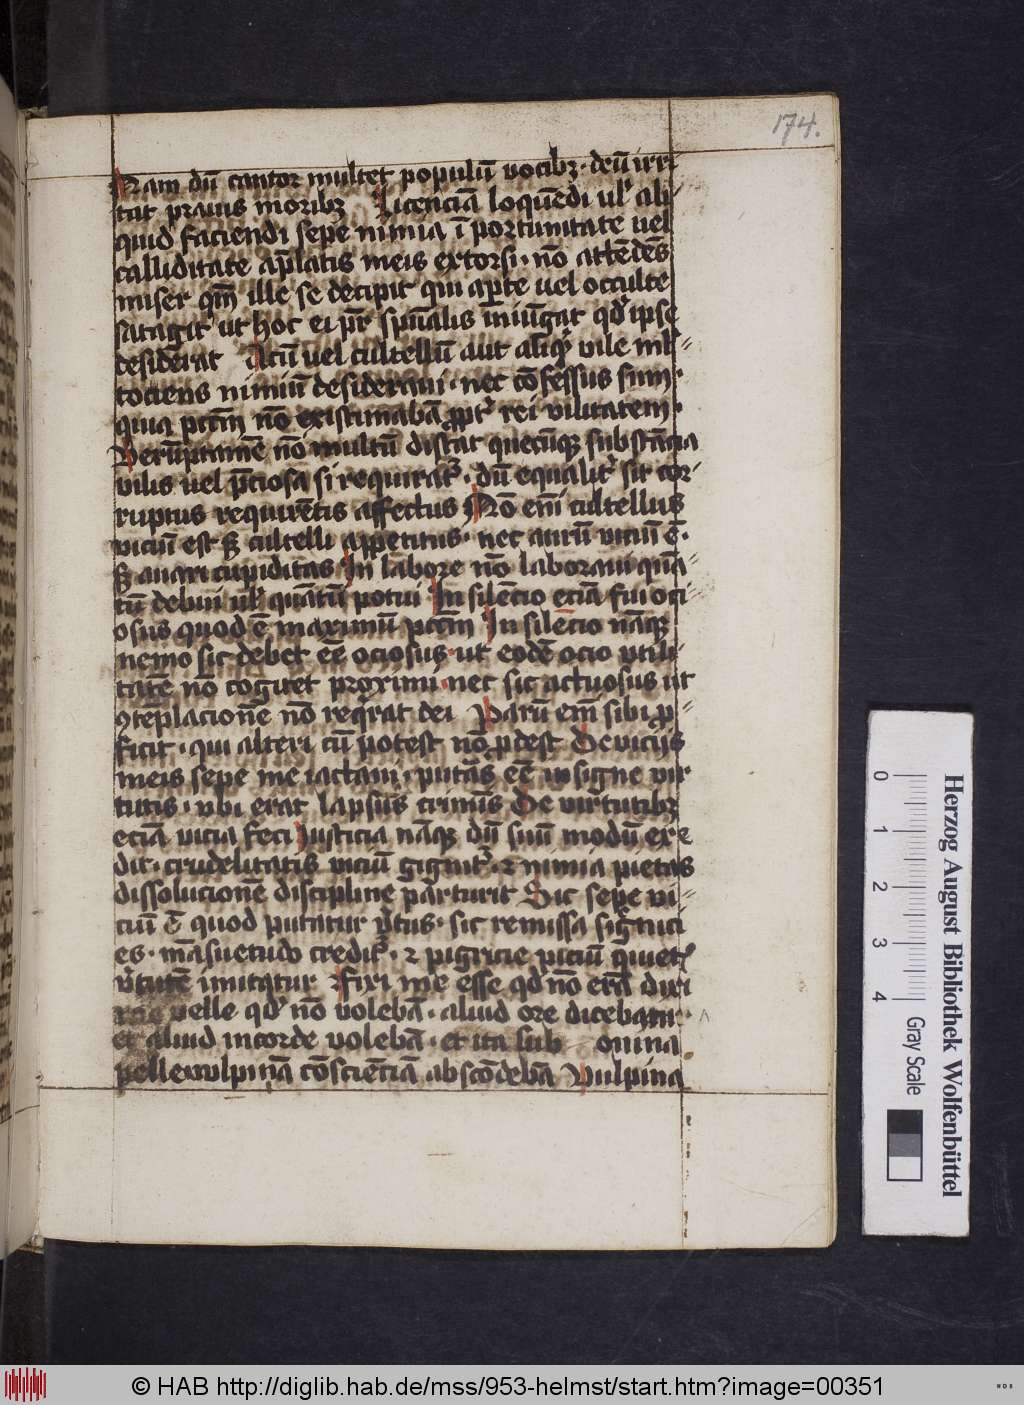 174.
Nam dū cantor mulcet populū vocibꝫ · deū irri
tat prauis moribꝫ Licenciā loquēdi ul̕ ali
quid faciendi sepe nimia īportunitate uel
calliditate a p̄latis meis extorsi · nō attēdēs
miser qm̄ ille se decipit qui aꝑte uel occulte
satagit ut hoc ei pr̄ spūalis iniūgat qd̕ ipse
desiderat Acū uel cultellū aut aliqd̕ vile ml̕
tociens nimiū desideraui · nec cōfessus sum ·
quia pccm̄ nō existimabā ꝓpt̕ rei vilitatem ·
Verūptamē nō multū distat quecūqꝫ substācia
vilis uel p̄ciosa si requirat᷑ · dū equalit̕ sit cor
ruptus requirētis affectus Nō em̄ cultellus
viciū est sꝫ cultelli appetitus · nec aurū viciū ē ·
sꝫ auari cupiditas In labore nō laboraui quā
tū debui ul̕ quātū potui In silēcio eciā fui oci
osus quod ē maximū pccm̄ In silēcio nāqꝫ
nemo sic debet eē ociosus · ut eodē ocio vtili
tatē nō cogitet proximi · nec sic actuosus ut
ꝯtēplacionē nō req̕rat dei Parū em̄ sibi ꝓ
ficit · qui alteri cū potest nō ꝓdest De vicijs
meis sepe me iactaui · putās eē insigne vir
tutis · vbi erat lapsus crimīs De virtutibꝫ
eciā vicia feci Iusticia nāqꝫ dū suū modū exce
dit · crudelitatis viciū gignit᷑ · ⁊ nimia pietas
dissolucionē discipline parturit Sic sepe vi
ciū ē quod putatur v̕tus · sic remissa signici
es · māsuetudo credit᷑ · ⁊ pigricie viciū quiet̕
v̕tutē imitatur Fixi me esse qd̕ nō erā dixi
velle qd̕ nō volebā · aliud ore dicebam ·
et aliud in corde volebā · et ita sub ouina
pelle vulpinā cōsciēciā abscōdebā Vulpina
0 1 2 3 4
Gray Scale
Herzog August Bibliothek Wolfenbüttel
© HAB http://diglib.hab.de/mss/953-helmst/start.htm?image=00351